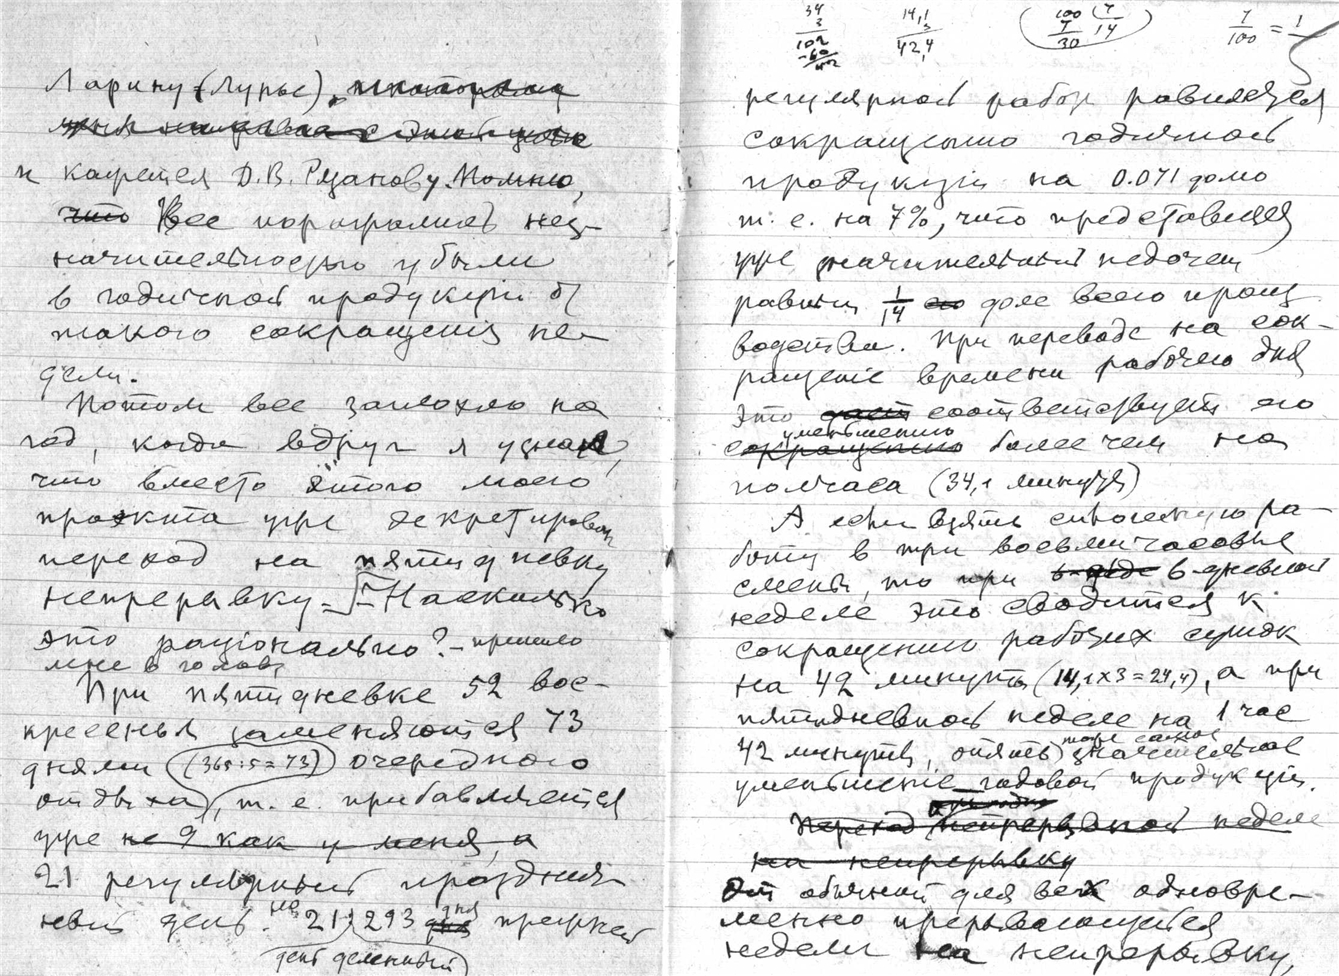 Ларину (Лурье),
и кажется Д.В. Рязанову. Помню,
что Все поразились нез-
начительностью убыли
в годичной продукции от
такого сокращения не-
дели.
Потом все заглохло на
год, когда вдруг я узнал,
что вместо этого моего
проэкта уже декретирован
переход на пятидневку
непрерывку. – Насколько
это раціонально? – пришло
мне в голову
При пятидневке 52 вос-
кресенья заменяются 73
днями (365:5=73) очередного
отдыха, т. е. прибавляется
уже не 9 как у меня, а
21 регулярный празднич-
ный день. на 21:293 дня прежней
день деленный
34
3
102
-60
42
14,1
3
42,4
100 7
7 14
30
7/100 = 1/
регулярной работы равняется
сокращению годичной
продукции на 0.071 долю
т. е. на 7%, что представляет
уже значительный недочет
равный 1/14 доле всего произ
водства. При переводе на сок-
ращение времени рабочего дня
это соответствует его
уменьшению
сокращению более чем на
полчаса (34,1 минуты)
А если взять сплошную ра-
боту в три восьмичасовые
смены, то при 6-дневной
неделе это сводится к
сокращению рабочих суток
на 42 минуты (14,1x3=24,4), а при
пятидневной неделе на 1 час
42 минуты, опять тоже самое значительное
уменьшение годовой продукции.
Переход непрерывной недели
на непрерывку
От обычной для всех одновре-
менно прерывающейся
недели на непрерывку,